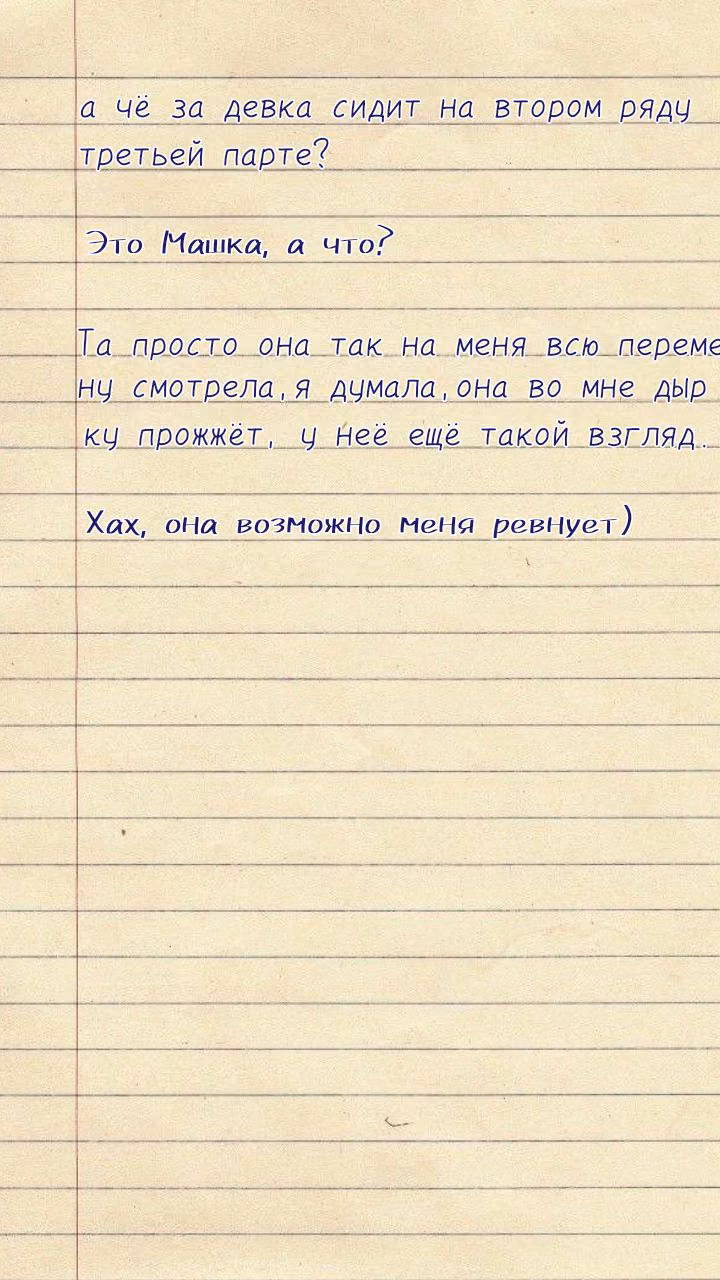 а чё за девка сидит на втором ряду
третьей парте?
Это Машка, а что?
Та просто она так на меня всю переме
ну смотрела,я думала,она во мне дыр
ку прожжёт, у неё ещё такой взгляд..
Хах, она возможно меня ревнует)